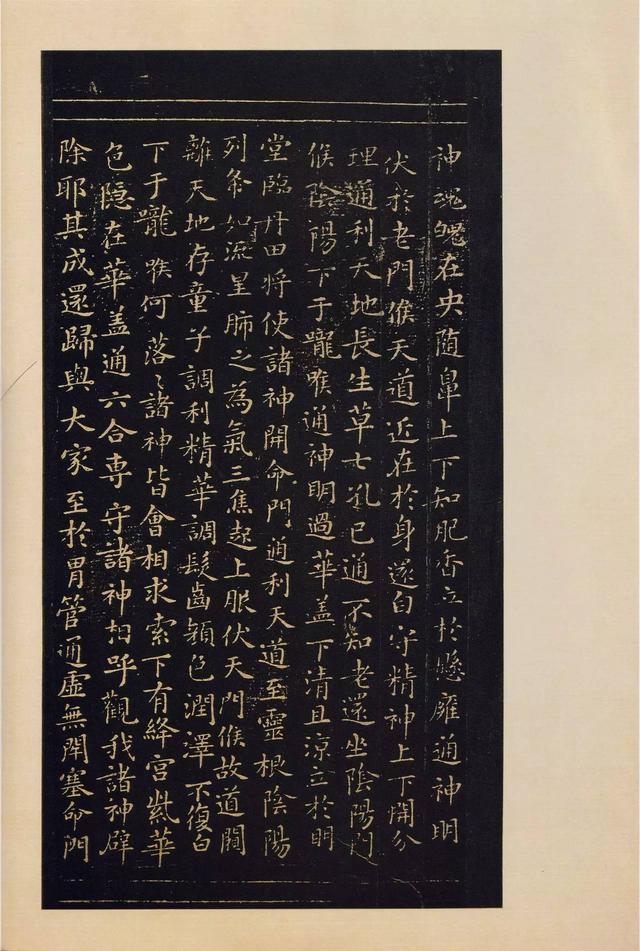 神魂魄在央随鼻上下知肥香立於懸癰通神明
伏於老門候天道近在於身還自守精神上下開分
理通利天地長生草七孔已通不知老還坐陰陽門
候陰陽下于嚨喉通神明過華盖下清且涼立於明
堂臨丹田将使諸神開命門通利天道至靈根陰陽
列布如流星肺之為氣三焦起上服伏天門候故道闚
離天地存童子調利精華調髮齒顏色潤澤不復白
下于嚨喉何落〻諸神皆會相求索下有絳宫紫華
色隱在華盖通六合専守諸神相呼觀我諸神辟
除耶其成還歸與大家至於胃管通虛無閉塞命門